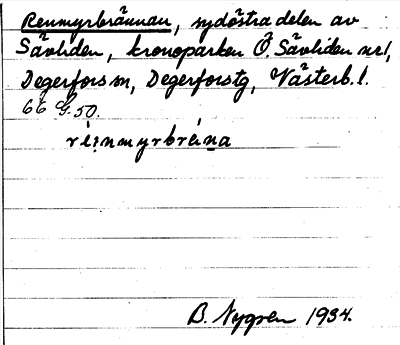 Renmyrbrännan, sydöstra delen av
Sävliden, kronoparken Ö. Sävliden nr 1,
Degerfors sn, Degerforstg, Västerb. l.
66 G. 50.
réinmyrbréina
B. Nygren 1934.